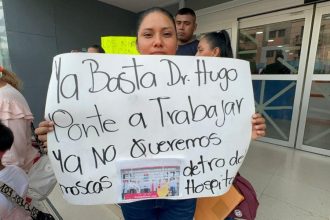 Ya Basta Dr. Hugo
Ponte a Trabajar
Ya No Queremos
moscas detro de
Hospital